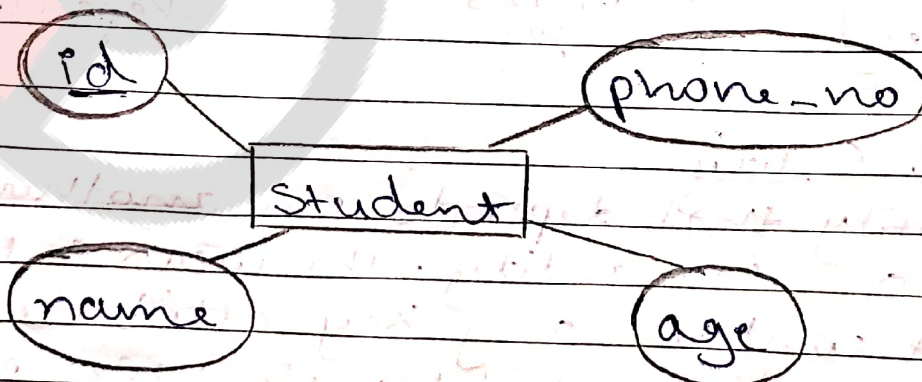 id
phone_no
Student
name
age